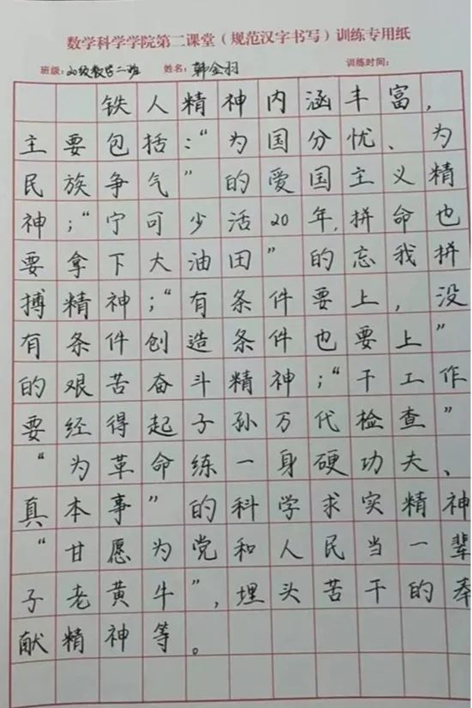 数学科学学院第二课堂（规范汉字书写）训练专用纸
班级：20级数学二班 姓名：韩金羽 训练时间：
铁人精神内涵丰富，
主要包括：“为国分忧、为
民族争气”的爱国主义精
神；“宁可少活20年，拼命也
要拿下大油田”的忘我拼
搏精神；“有条件要上，没
有条件创造条件也要上”
的艰苦奋斗精神；“干工作
要经得起子孙万代检查”
“为革命练一身硬功夫、
真本事”的科学求实精神
“甘愿为党和人民当一辈
子老黄牛”，埋头苦干的奉
献精神等。